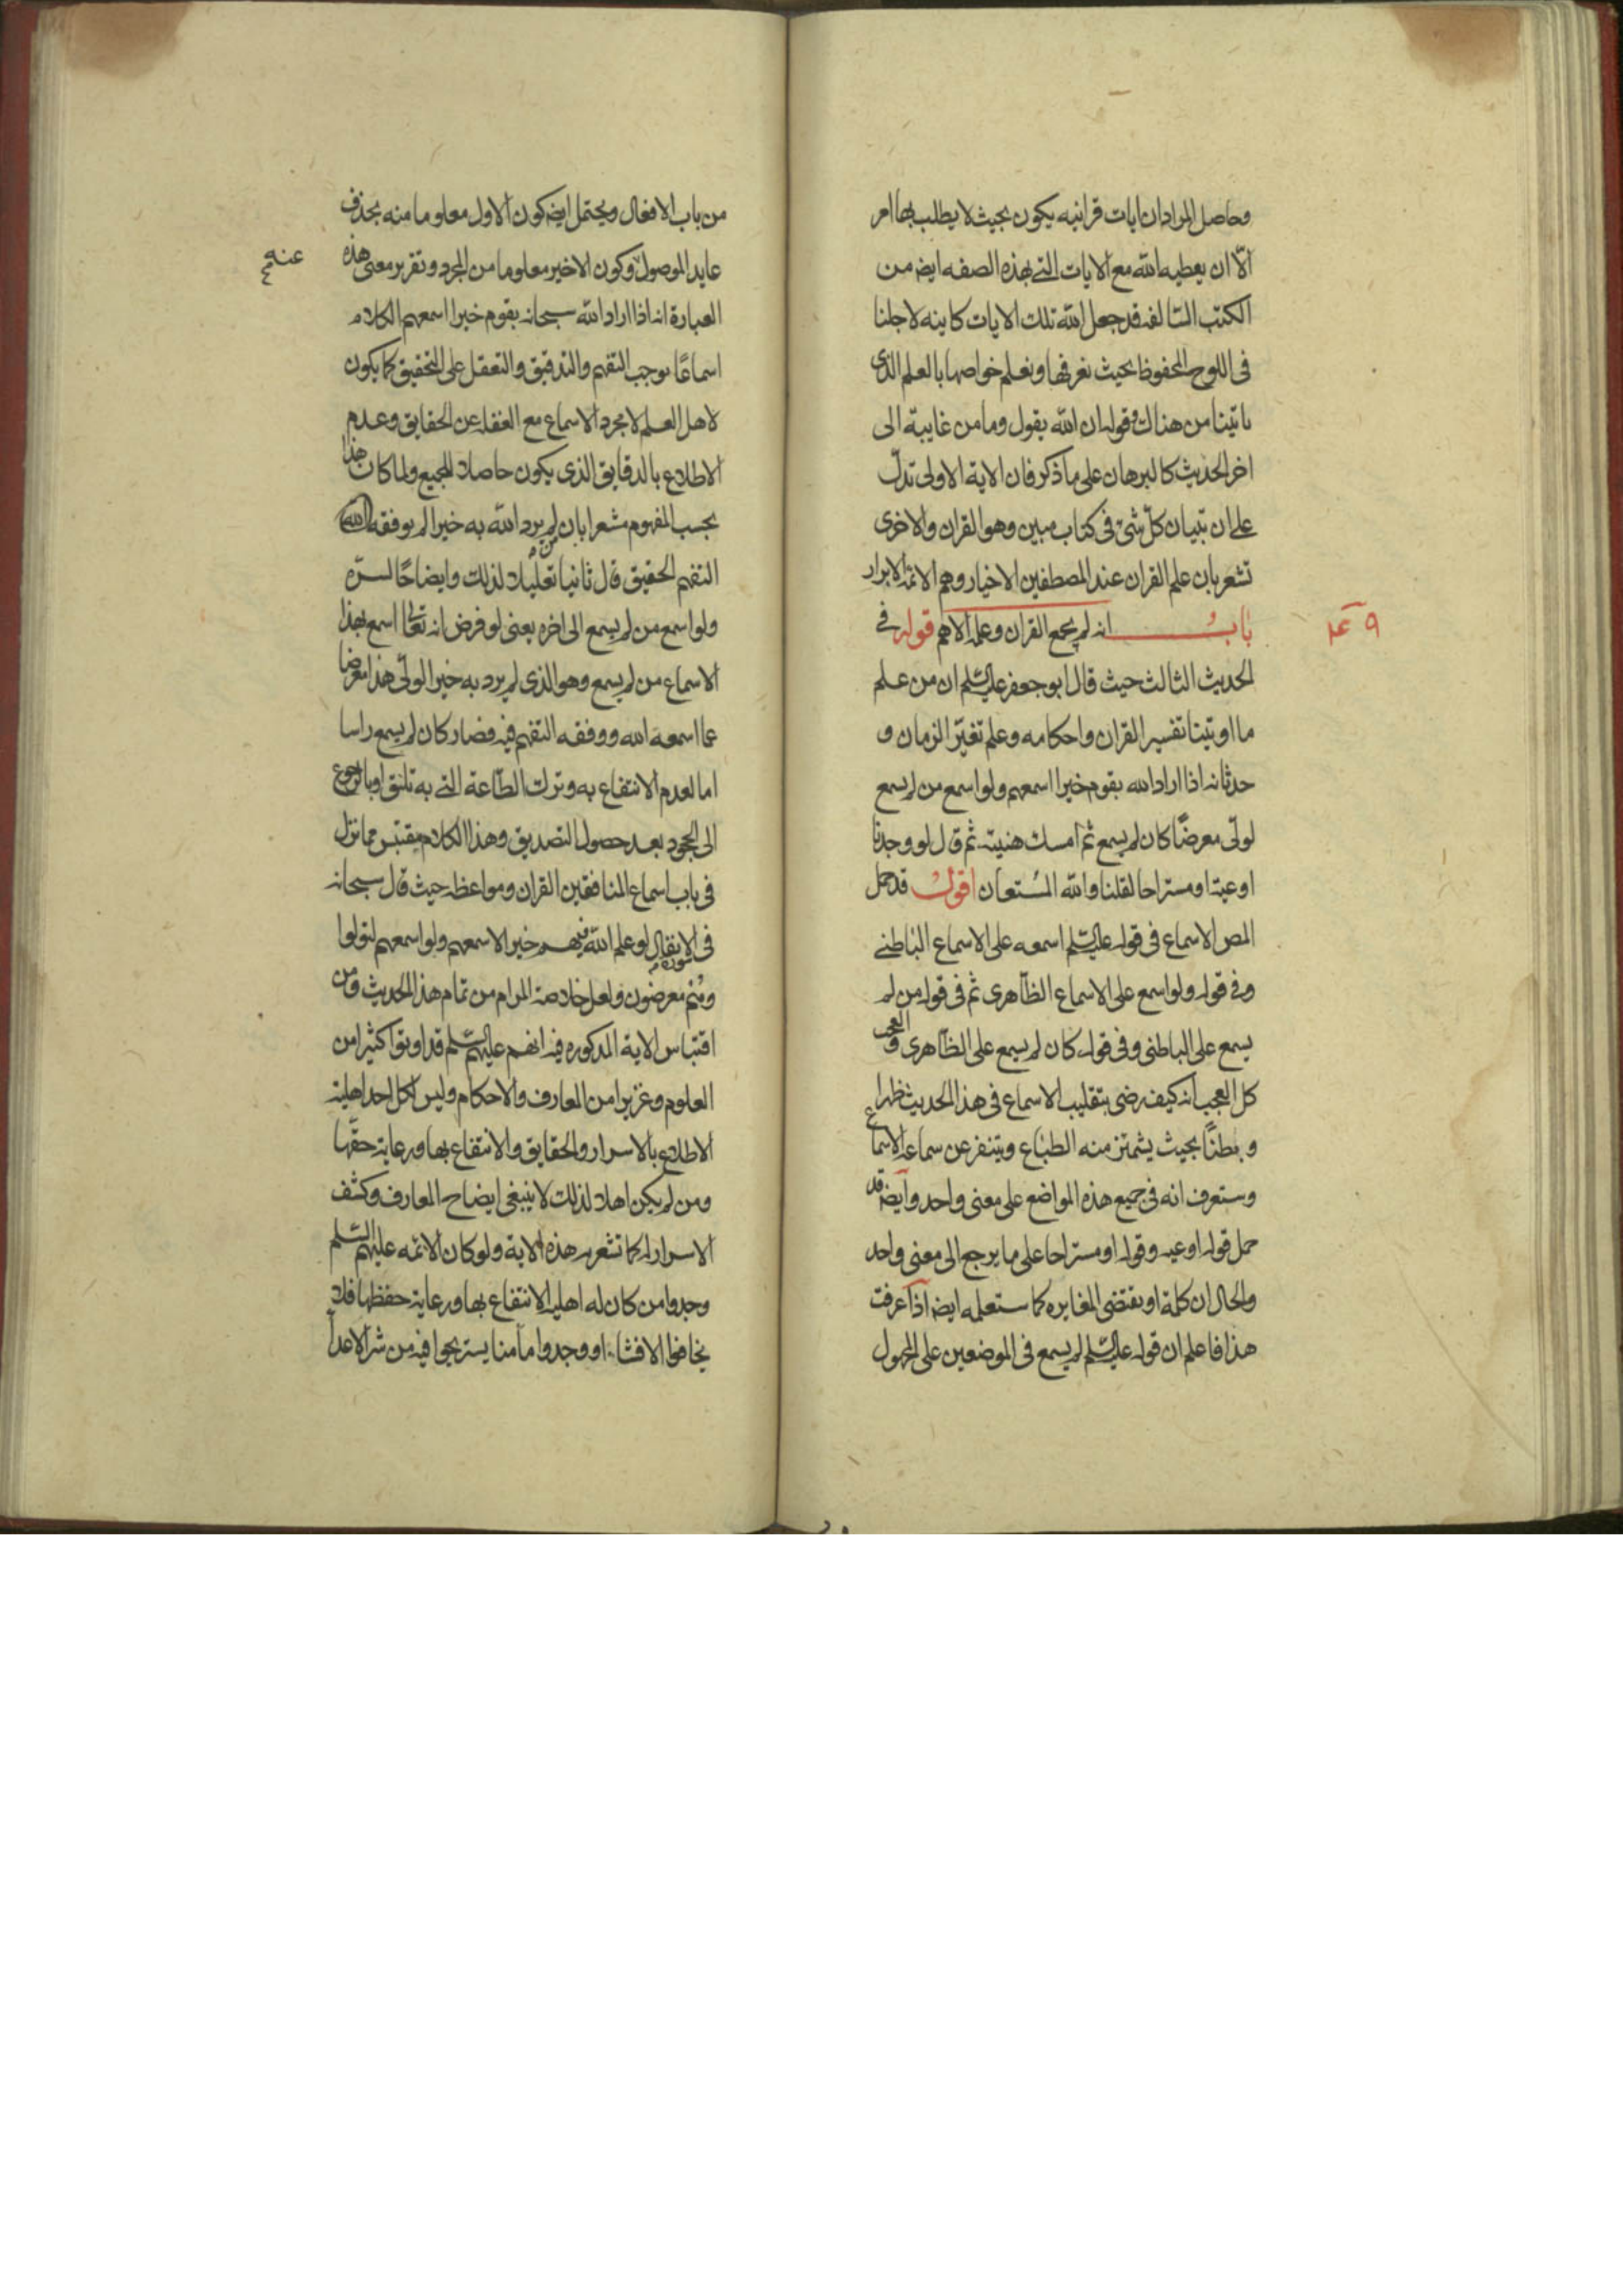 وحاصل المراد ان ايات قرانيه يكون بحيث لا يطلب بها امر
الّا ان يعطيه الله مع الايات التے بهذه الصفه ايضه من
الكتب السّالفه قد جعل الله تلك الايات كاينه لاجلنا
فى اللوح المحفوظ بحيث نعرفها ونعلم خواصها بالعلم الذى
ياتينا من هناك وقوله ان الله يقول وما من غايبة الى
اخر الحديث كالبرهان على ما ذكر فان الاية الاولى تدلّ
على ان تبيان كلّ شئ فى كتاب مبين وهو القران والاخرى
تشعر بان علم القران عند المصطفين الاخيار وهم الائمّة الابرار
باب انه لم يجمع القران وعلمه الا هم قوله فے
٩ عد
الحديث الثالث حيث قال ابو جعفر عليه السّلم ان من علم
ما اوتينا تفسير القران واحكامه وعلم تغيّر الزمان و
حدثانه اذا اراد الله بقوم خيرا اسمعهم ولو اسمع من لم يسمع
لولّى معرضًا كان لم يسمع ثم امسك هنيئة ثم قال لو وجدنا
اوعية او مستراحا لقلنا والله المُستعان اقول قد حمل
المص الاسماع فى قوله عليه السّلم اسمعه على الاسماع الباطنے
وفے قوله ولو اسمع على الاسماع الظاهرى ثم فى قوله من لم
يسمع على الباطنى وفى قوله كان لم يسمع على الظّاهرى والعجب
كل العجب انه كيف رضى بتقليب الاسماع فى هذا الحديث ظهرا
وبطنًا بحيث يشمئز منه الطباع ويتنفر عن سماعه الاسماع
وستعرف انه فى جميع هذه المواضع على معنى واحد وايضه قد
حمل قوله اوعيه وقوله او مستراحا على ما يرجع الى معنى واحد
والحال ان كلمة او يقتضى المغايره كما ستعلمه ايضه اذا عرفت
هذا فاعلم ان قوله عليه السّلم لم يسمع فى الموضعين على المجهول
من باب الافعال ويحتمل ايضه كون الاول معلوما منه بحذف
عايد الموصول وكون الاخير معلوما من المجرد وتقرير معنى هذه
عنه
العبارة انه اذا اراد الله سبحانه بقوم خيرا اسمعهم الكلام
اسماعًا يوجب التفهم والتدقيق والتعقل على التحقيق كما يكون
لاهل العلم لا مجرد الاسماع مع الغفله عن الحقايق وعدم
الاطلاع بالدقايق الذى يكون حاصلا للجميع ولما كان هذا
بحسب المفهوم مشعرا بان لم يرد الله به خيرا لم يوفقه الله
من
التفهم الحقيقى قال ثانيا تعليلا لذلك وايضاحًا لسرّه
ولو اسمع من لم يسمع الى اخره يعنى لو فرض انه تعالى اسمع بهذا
الاسماع من لم يسمع وهو الذى لم يرد به خيرا لولّى هذا معرضا
عما اسمعه الله ووفقه التفهم فيه فصار كان لم يسمع راسا
اما لعدم الانتفاع به وترك الطّاعة التے به تلتق او بالرجوع
الى الجحود بعد حصول التصديق وهذا الكلام مقتبس مما نزل
فى باب اسماع المنافقين القران ومواعظه حيث قال سبحانه
فى الانفال لو علم الله فيهم خيرا لاسمعهم ولو اسمعهم لتولوا
سورة
وهُم معرضون ولعل خلاصة المرام من تمام هذا الحديث ومن
اقتباس الاية المذكوره فيه انهم عليهم السّلم قد اوتوا كثيرا من
العلوم وعزيرا من المعارف والاحكام وليس لكل احد اهلية
الاطلاع بالاسرار والحقايق والانتفاع بها ورعاية حقّها
ومن لم يكن اهلا لذلك لا ينبغى ايضاح المعارف وكشف
الاسرار له كما تشعر به هذه الاية ولو كان الائمه عليهم السّلم
وجدوا من كان له اهلية الانتفاع بها ورعاية حفظها فلا
يخافوا الافشاء او وجدوا مامنا يستريحوا فيه من شر الاعدا